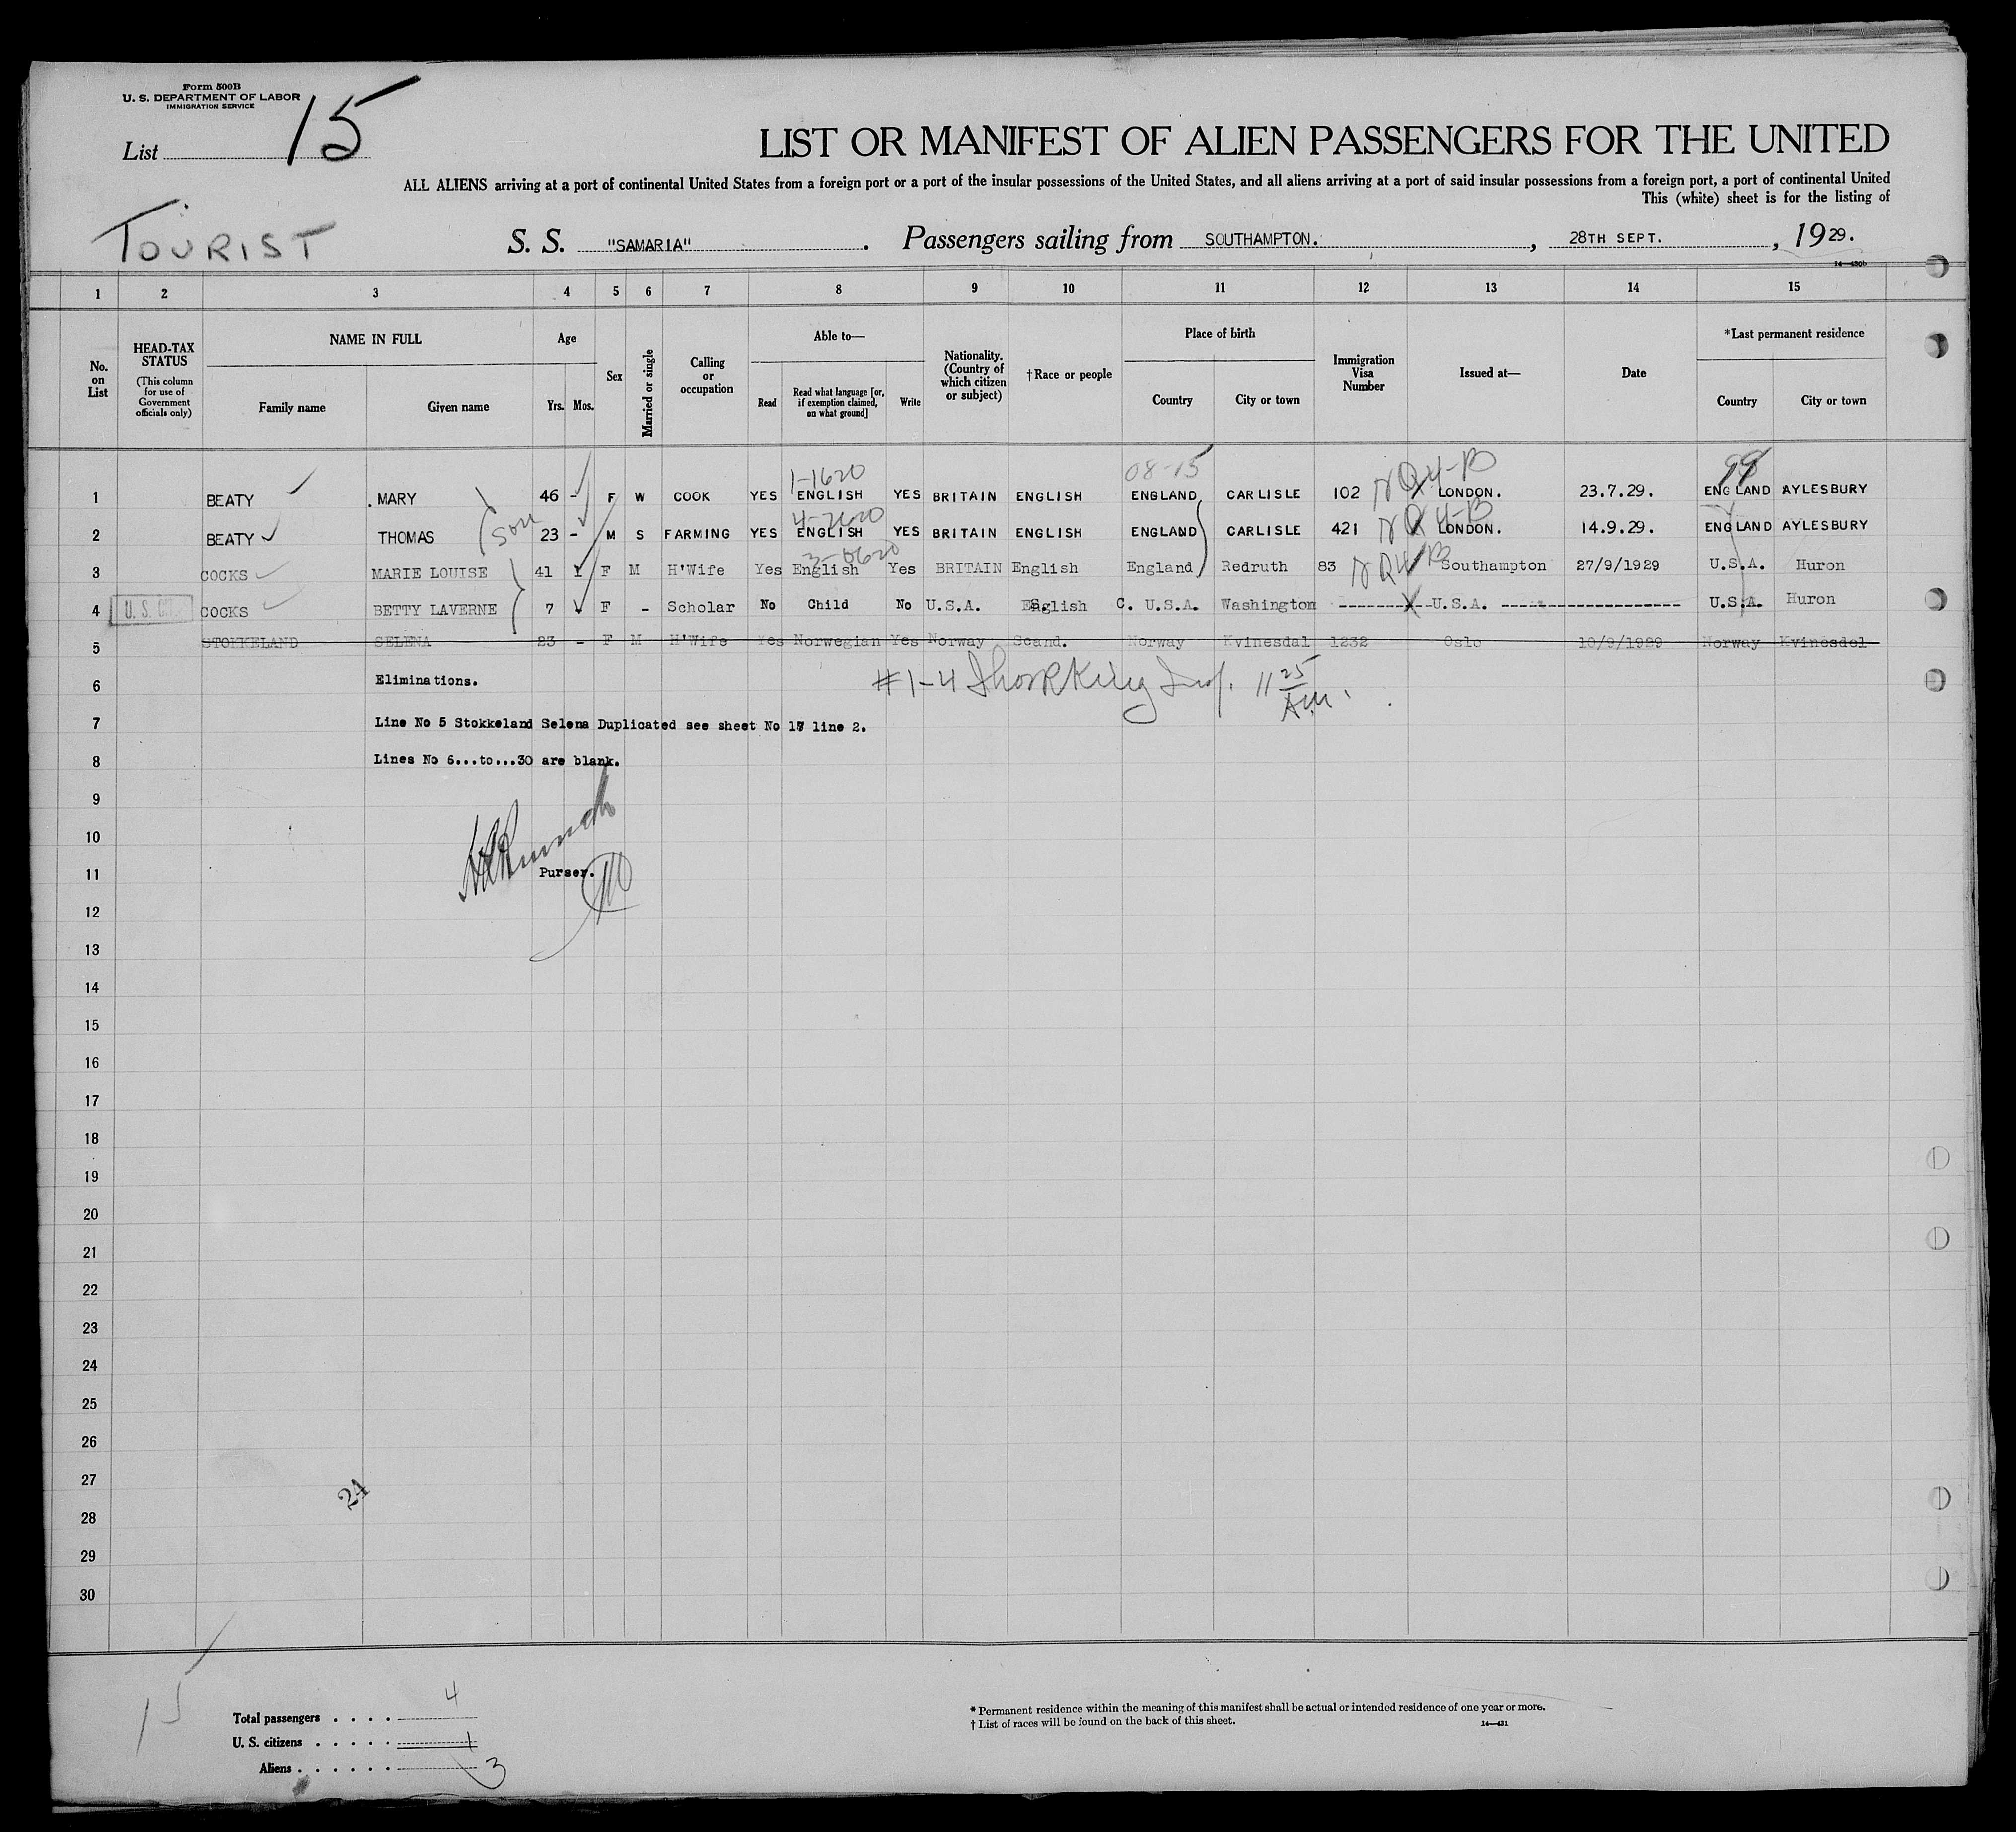 Form 500B
U. S. DEPARTMENT OF LABOR
IMMIGRATION SERVICE
List 15
LIST OR MANIFEST OF ALIEN PASSENGERS FOR THE UNITED
ALL ALIENS arriving at a port of continental United States from a foreign port or a port of the insular possessions of the United States, and all aliens arriving at a port of said insular possessions from a foreign port, a port of continental United
This (white) sheet is for the listing of
TOURIST
S. S. "SAMARIA" . Passengers sailing from SOUTHAMPTON. , 28TH SEPT. , 1929.
14—430b
1 2 3 4 5 6 7 8 9 10 11 12 13 14 15
No. on List
HEAD-TAX STATUS (This column for use of Government officials only)
NAME IN FULL Family name Given name
Age Yrs. Mos.
Sex
Married or single
Calling or occupation
Able to— Read Read what language [or, if exemption claimed, on what ground] Write
Nationality. (Country of which citizen or subject)
†Race or people
Place of birth Country City or town
Immigration Visa Number
Issued at—
Date
*Last permanent residence Country City or town
1-1620 08-15 99
1 BEATY MARY 46 - F W COOK YES ENGLISH YES BRITAIN ENGLISH ENGLAND CARLISLE 102 LONDON. 23.7.29. ENGLAND AYLESBURY
2 BEATY THOMAS son 23 - M S FARMING YES ENGLISH YES BRITAIN ENGLISH ENGLAND CARLISLE 421 LONDON. 14.9.29. ENGLAND AYLESBURY
3 COCKS MARIE LOUISE 41 1 F M H'Wife Yes English Yes BRITAIN English England Redruth 83 Southampton 27/9/1929 U.S.A. Huron
4 U. S. COCKS BETTY LAVERNE 7 F - Scholar No Child No U.S.A. English C. U.S.A. Washington U.S.A. U.S.A. Huron
5 STOKKELAND SELENA 23 - F M H'Wife Yes Norwegian Yes Norway Scand. Norway Kvinesdal 1232 Oslo 10/9/1929 Norway Kvinesdal
6 Eliminations.
#1-4 11 25 AM.
7 Line No 5 Stokkeland Selena Duplicated see sheet No 17 line 2.
8 Lines No 6...to...30 are blank.
9
10
11 Purser.
12
13
14
15
16
17
18
19
20
21
22
23
24
25
26
27
24
28
29
30
15
Total passengers . . . . 4
U. S. citizens . . . . . 1
Aliens . . . . . . 3
* Permanent residence within the meaning of this manifest shall be actual or intended residence of one year or more.
† List of races will be found on the back of this sheet.
14—431